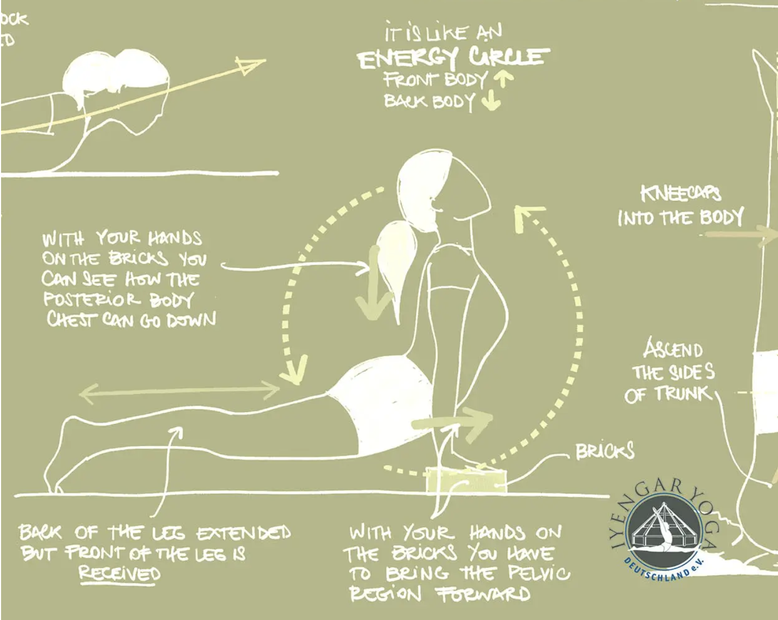 OCK
D
IT IS LIKE AN
ENERGY CIRCLE
FRONT BODY
BACK BODY
KNEECAPS
INTO THE BODY
WITH YOUR HANDS
ON THE BRICKS YOU
CAN SEE HOW THE
POSTERIOR BODY
CHEST CAN GO DOWN
ASCEND
THE SIDES
OF TRUNK
BRICKS
BACK OF THE LEG EXTENDED
BUT FRONT OF THE LEG IS
RECEIVED
WITH YOUR HANDS ON
THE BRICKS YOU HAVE
TO BRING THE PELVIC
REGION FORWARD
IYENGAR YOGA
DEUTSCHLAND e.V.